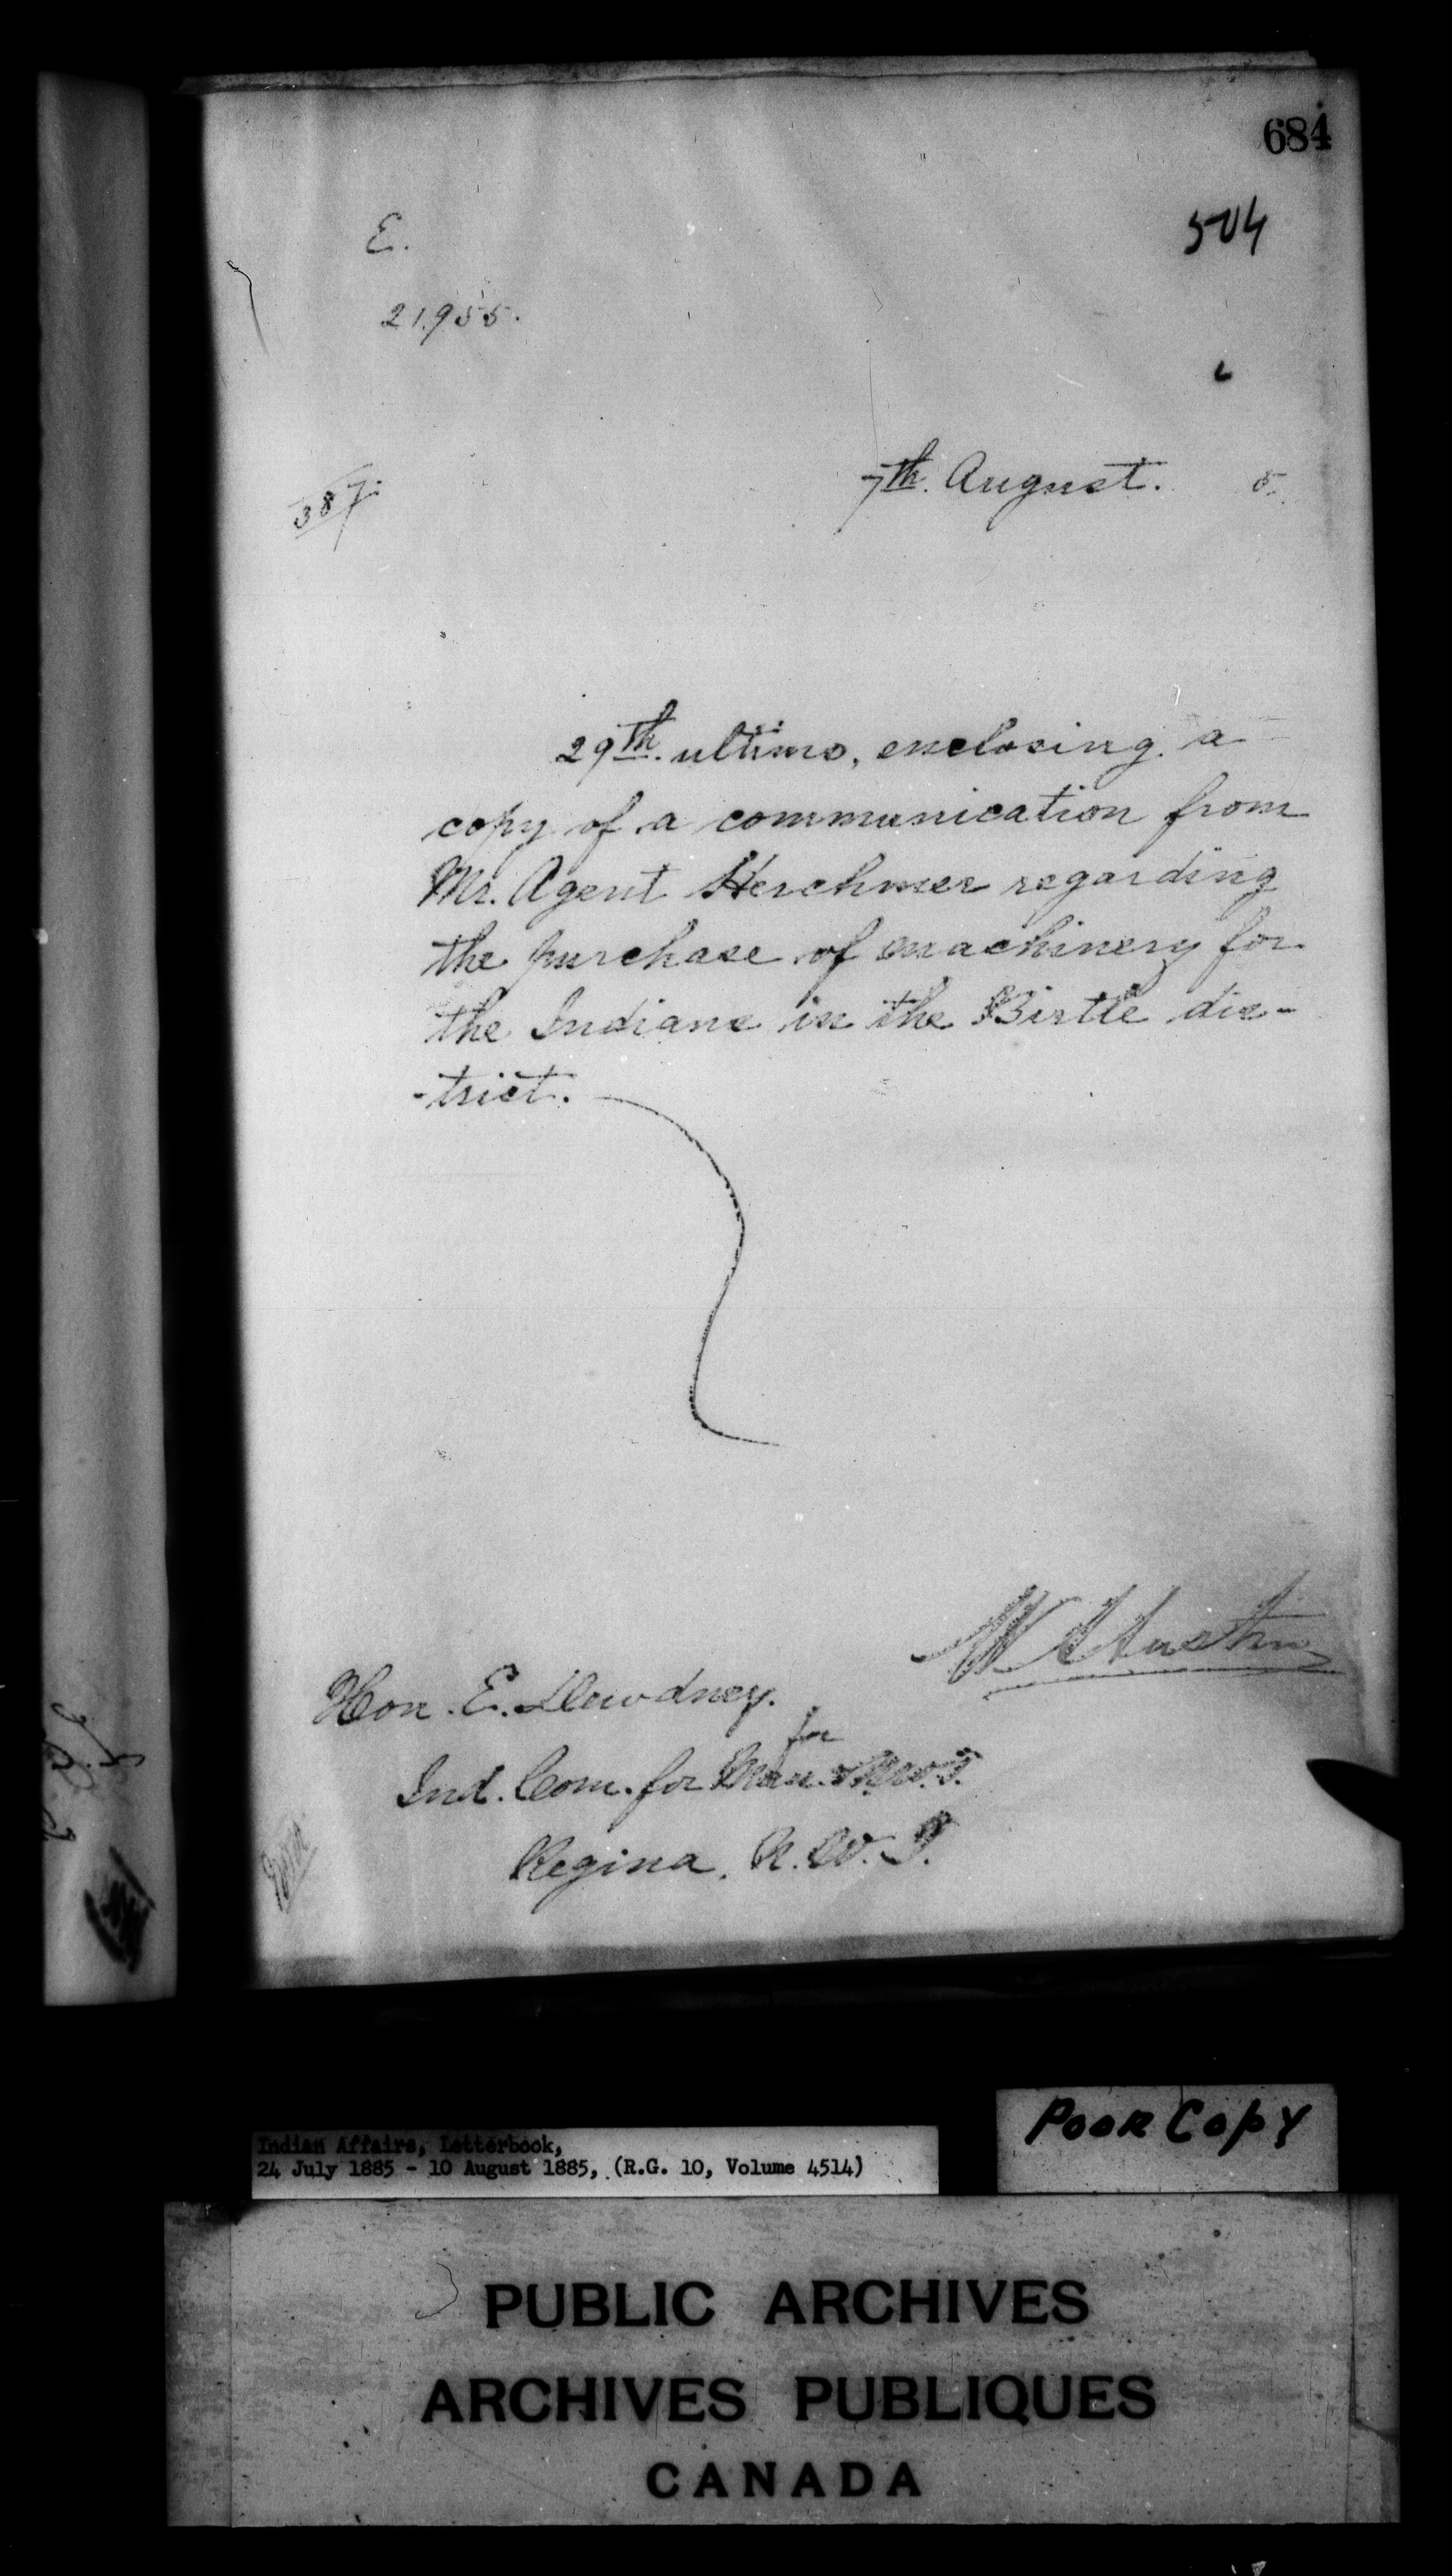 684
504
E.
21.955.
387.
7th. August. 5.
29th. ultimo, enclosing a
copy of a communication from
Mr. Agent Herchmer regarding
the purchase of machinery for
the Indians in the Birtle dis-
-trict.
Hon. E. Dewdney.
for
Ind. Com. for Man. & N.W.T.
Regina, N.W.T.
Indian Affairs, Letterbook,
24 July 1885 - 10 August 1885, (R.G. 10, Volume 4514)
POOR COPY
PUBLIC ARCHIVES
ARCHIVES PUBLIQUES
CANADA